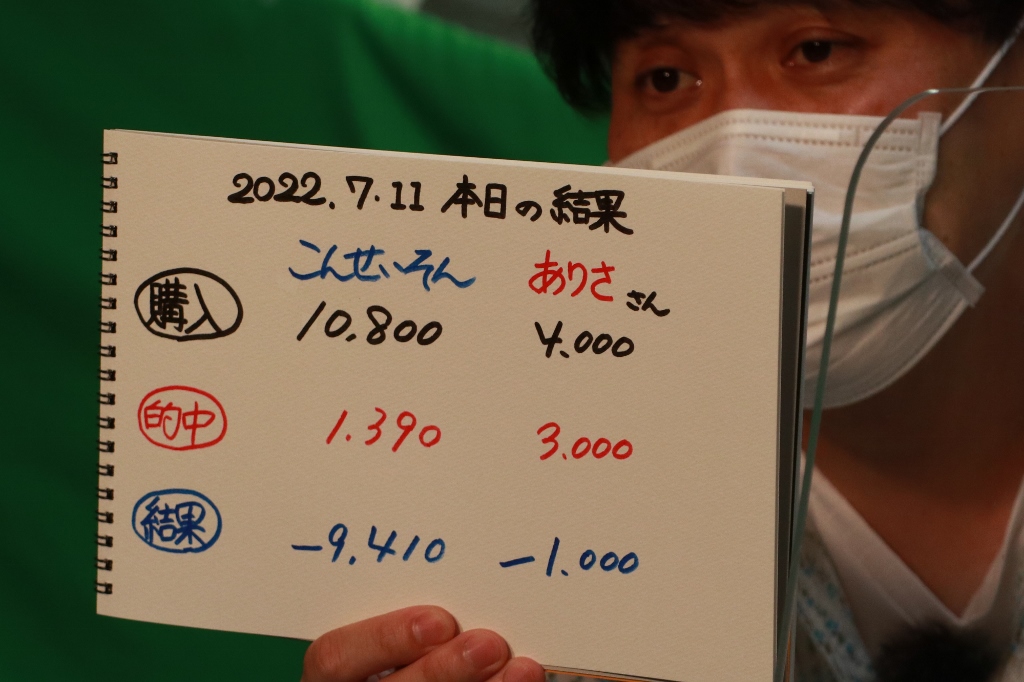 2022.7.11 本日の結果
こんせいそん ありささん
購入 10.800 4.000
的中 1.390 3.000
結果 -9.410 -1.000